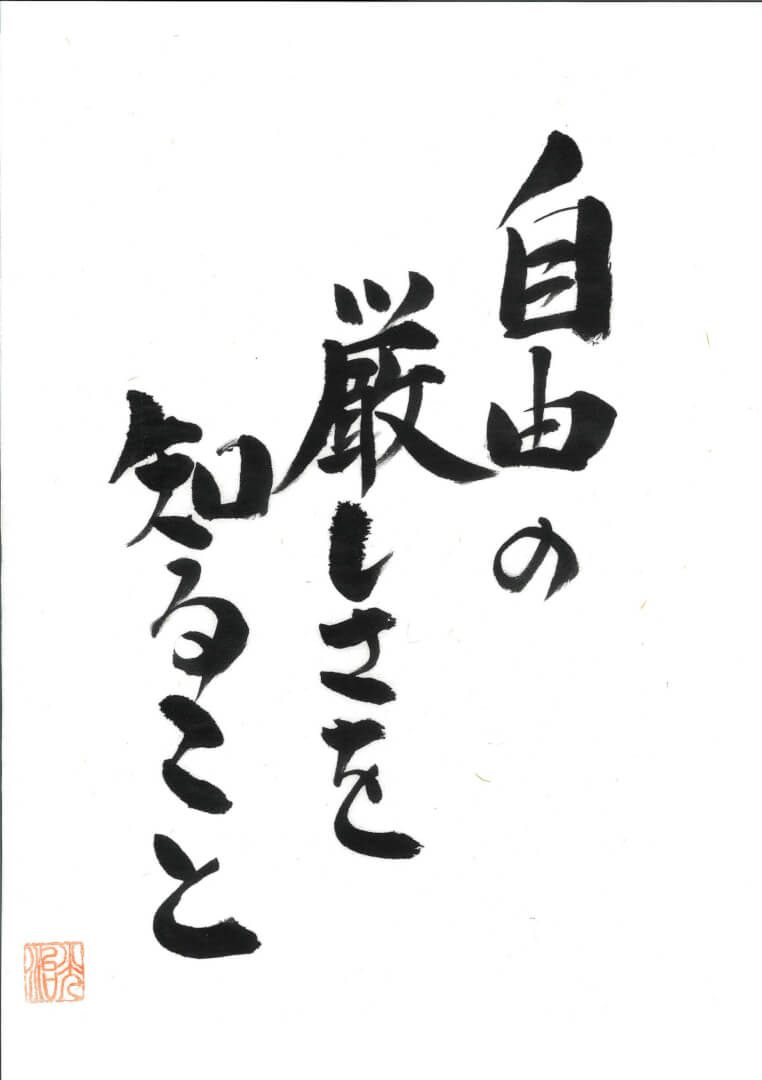 自由の
厳しさを
知ること